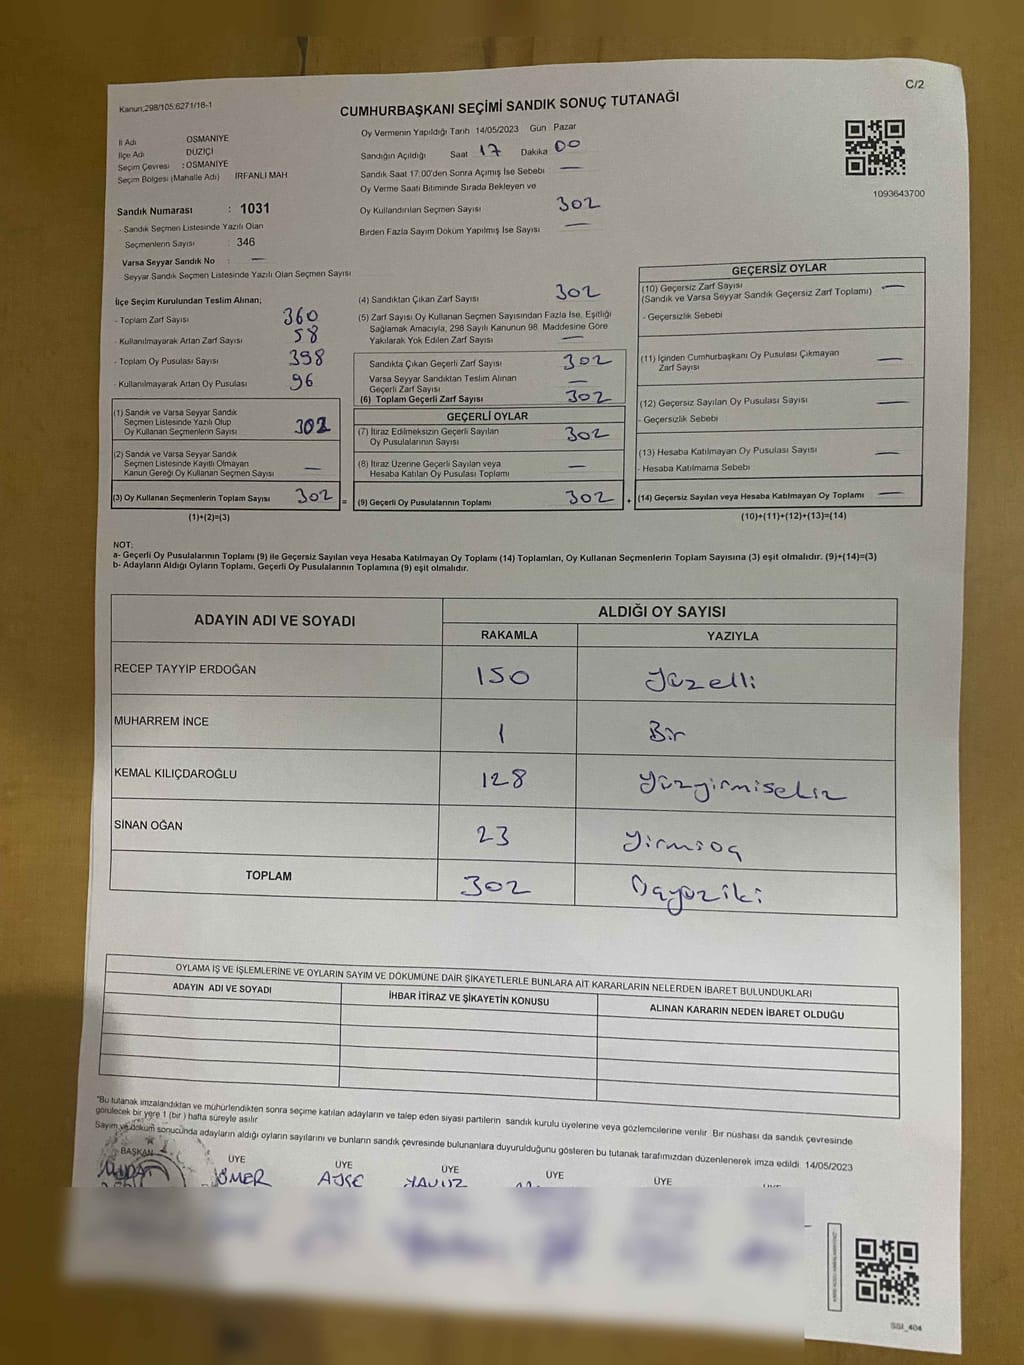 C/2
Kanun;298/105:6271/18-1
CUMHURBAŞKANI SEÇİMİ SANDIK SONUÇ TUTANAĞI
İl Adı OSMANİYE
İlçe Adı DÜZİÇİ
Seçim Çevresi : OSMANİYE
Seçim Bölgesi (Mahalle Adı) IRFANLI MAH.
Sandık Numarası : 1031
- Sandık Seçmen Listesinde Yazılı Olan
Seçmenlerin Sayısı : 346
Varsa Seyyar Sandık No : —
Seyyar Sandık Seçmen Listesinde Yazılı Olan Seçmen Sayısı
Oy Vermenin Yapıldığı Tarih 14/05/2023 Gün Pazar
Sandığın Açıldığı Saat 17 Dakika 00
Sandık Saat 17:00'den Sonra Açımış İse Sebebi —
Oy Verme Saati Bitiminde Sırada Bekleyen ve
Oy Kullandırılan Seçmen Sayısı 302
Birden Fazla Sayım Döküm Yapılmış İse Sayısı —
1093643700
İlçe Seçim Kurulundan Teslim Alınan;
- Toplam Zarf Sayısı 360
- Kullanılmayarak Artan Zarf Sayısı 58
- Toplam Oy Pusulası Sayısı 398
- Kullanılmayarak Artan Oy Pusulası 96
(1) Sandık ve Varsa Seyyar Sandık
Seçmen Listesinde Yazılı Olup
Oy Kullanan Seçmenlerin Sayısı 302
(2) Sandık ve Varsa Seyyar Sandık
Seçmen Listesinde Kayıtlı Olmayan
Kanun Gereği Oy Kullanan Seçmen Sayısı —
(3) Oy Kullanan Seçmenlerin Toplam Sayısı 302 =
(1)+(2)=(3)
(4) Sandıktan Çıkan Zarf Sayısı 302
(5) Zarf Sayısı Oy Kullanan Seçmen Sayısından Fazla İse, Eşitliği
Sağlamak Amacıyla, 298 Sayılı Kanunun 98. Maddesine Göre
Yakılarak Yok Edilen Zarf Sayısı —
Sandıkta Çıkan Geçerli Zarf Sayısı 302
Varsa Seyyar Sandıktan Teslim Alınan
Geçerli Zarf Sayısı —
(6) Toplam Geçerli Zarf Sayısı 302
GEÇERLİ OYLAR
(7) İtiraz Edilmeksizin Geçerli Sayılan
Oy Pusulalarının Sayısı 302
(8) İtiraz Üzerine Geçerli Sayılan veya
Hesaba Katılan Oy Pusulası Toplamı —
(9) Geçerli Oy Pusulalarının Toplamı 302 +
GEÇERSİZ OYLAR
(10) Geçersiz Zarf Sayısı —
(Sandık ve Varsa Seyyar Sandık Geçersiz Zarf Toplamı)
- Geçersizlik Sebebi
(11) İçinden Cumhurbaşkanı Oy Pusulası Çıkmayan
Zarf Sayısı —
(12) Geçersiz Sayılan Oy Pusulası Sayısı —
- Geçersizlik Sebebi
(13) Hesaba Katılmayan Oy Pusulası Sayısı —
- Hesaba Katılmama Sebebi
(14) Geçersiz Sayılan veya Hesaba Katılmayan Oy Toplamı —
(10)+(11)+(12)+(13)=(14)
NOT:
a- Geçerli Oy Pusulalarının Toplamı (9) ile Geçersiz Sayılan veya Hesaba Katılmayan Oy Toplamı (14) Toplamları, Oy Kullanan Seçmenlerin Toplam Sayısına (3) eşit olmalıdır. (9)+(14)=(3)
b- Adayların Aldığı Oyların Toplamı, Geçerli Oy Pusulalarının Toplamına (9) eşit olmalıdır.
ADAYIN ADI VE SOYADI ALDIĞI OY SAYISI
RAKAMLA YAZIYLA
RECEP TAYYİP ERDOĞAN 150 Yüzelli
MUHARREM İNCE 1 Bir
KEMAL KILIÇDAROĞLU 128 Yüzyirmisekiz
SİNAN OĞAN 23 Yirmiüç
TOPLAM 302 Üçyüziki
OYLAMA İŞ VE İŞLEMLERİNE VE OYLARIN SAYIM VE DÖKÜMÜNE DAİR ŞİKAYETLERLE BUNLARA AİT KARARLARIN NELERDEN İBARET BULUNDUKLARI
ADAYIN ADI VE SOYADI İHBAR İTİRAZ VE ŞİKAYETİN KONUSU ALINAN KARARIN NEDEN İBARET OLDUĞU
"Bu tutanak imzalandıktan ve mühürlendikten sonra seçime katılan adayların ve talep eden siyasi partilerin sandık kurulu üyelerine veya gözlemcilerine verilir. Bir nüshası da sandık çevresinde
görülecek bir yere 1 (bir) hafta süreyle asılır.
Sayım ve döküm sonucunda adayların aldığı oyların sayılarını ve bunların sandık çevresinde bulunanlara duyurulduğunu gösteren bu tutanak tarafımızdan düzenlenerek imza edildi. 14/05/2023
BAŞKAN ÜYE ÜYE ÜYE ÜYE ÜYE
ÖMER AYŞE YAVUZ
SSI_404